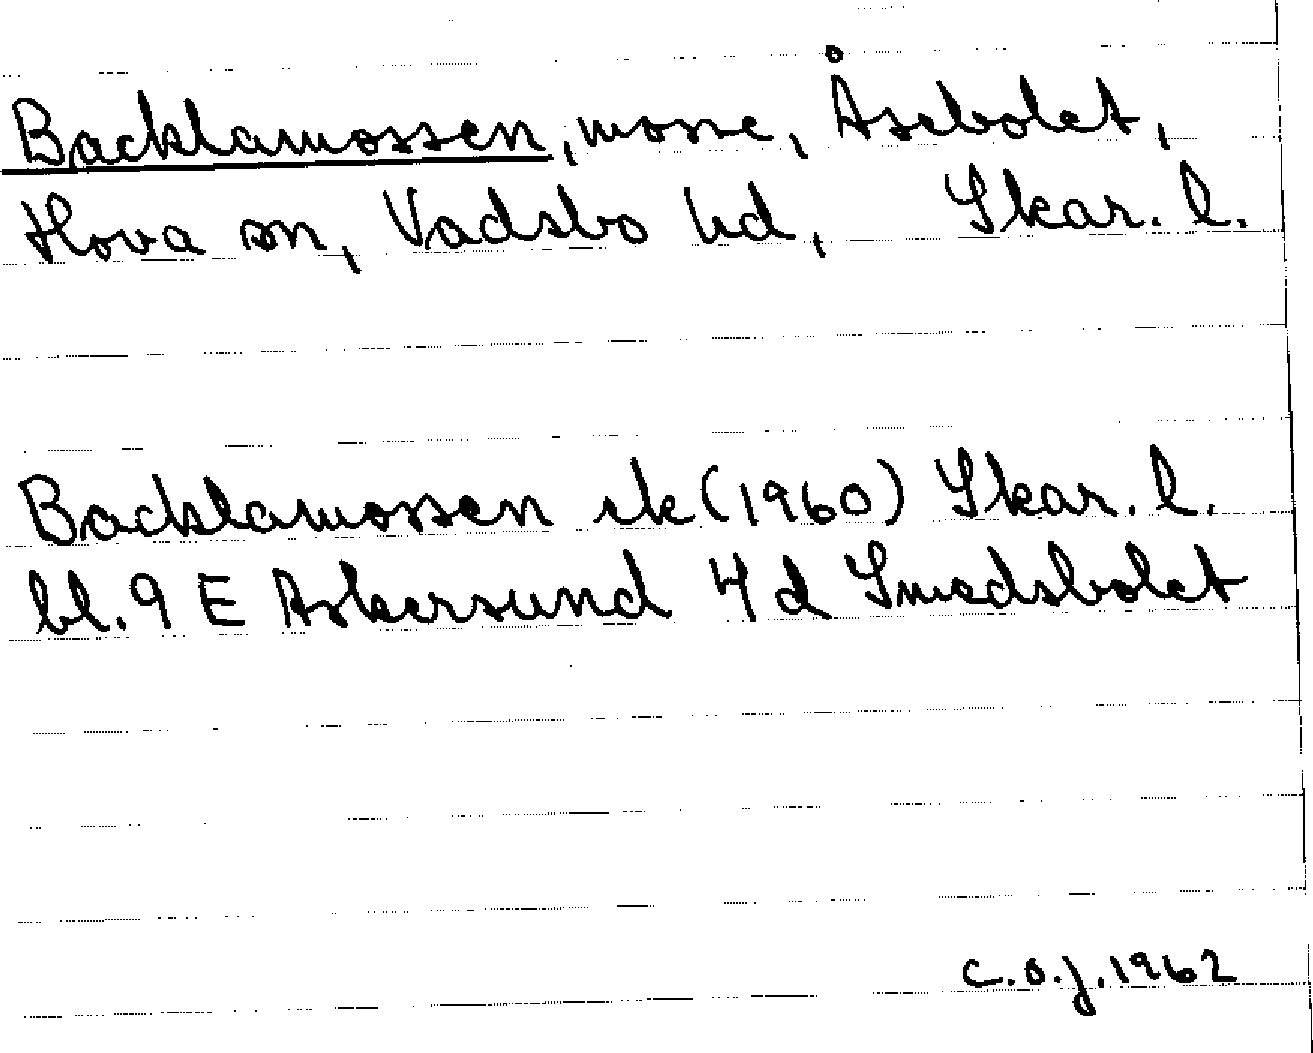 Backlamossen, mosse, Åsebolet,
Hova sn, Vadsbo hd, Skar. l.
Backlamossen ek (1960) Skar. l.
bl. 9 E Askersund 4 d Smedsbolet
C.O.J. 1962